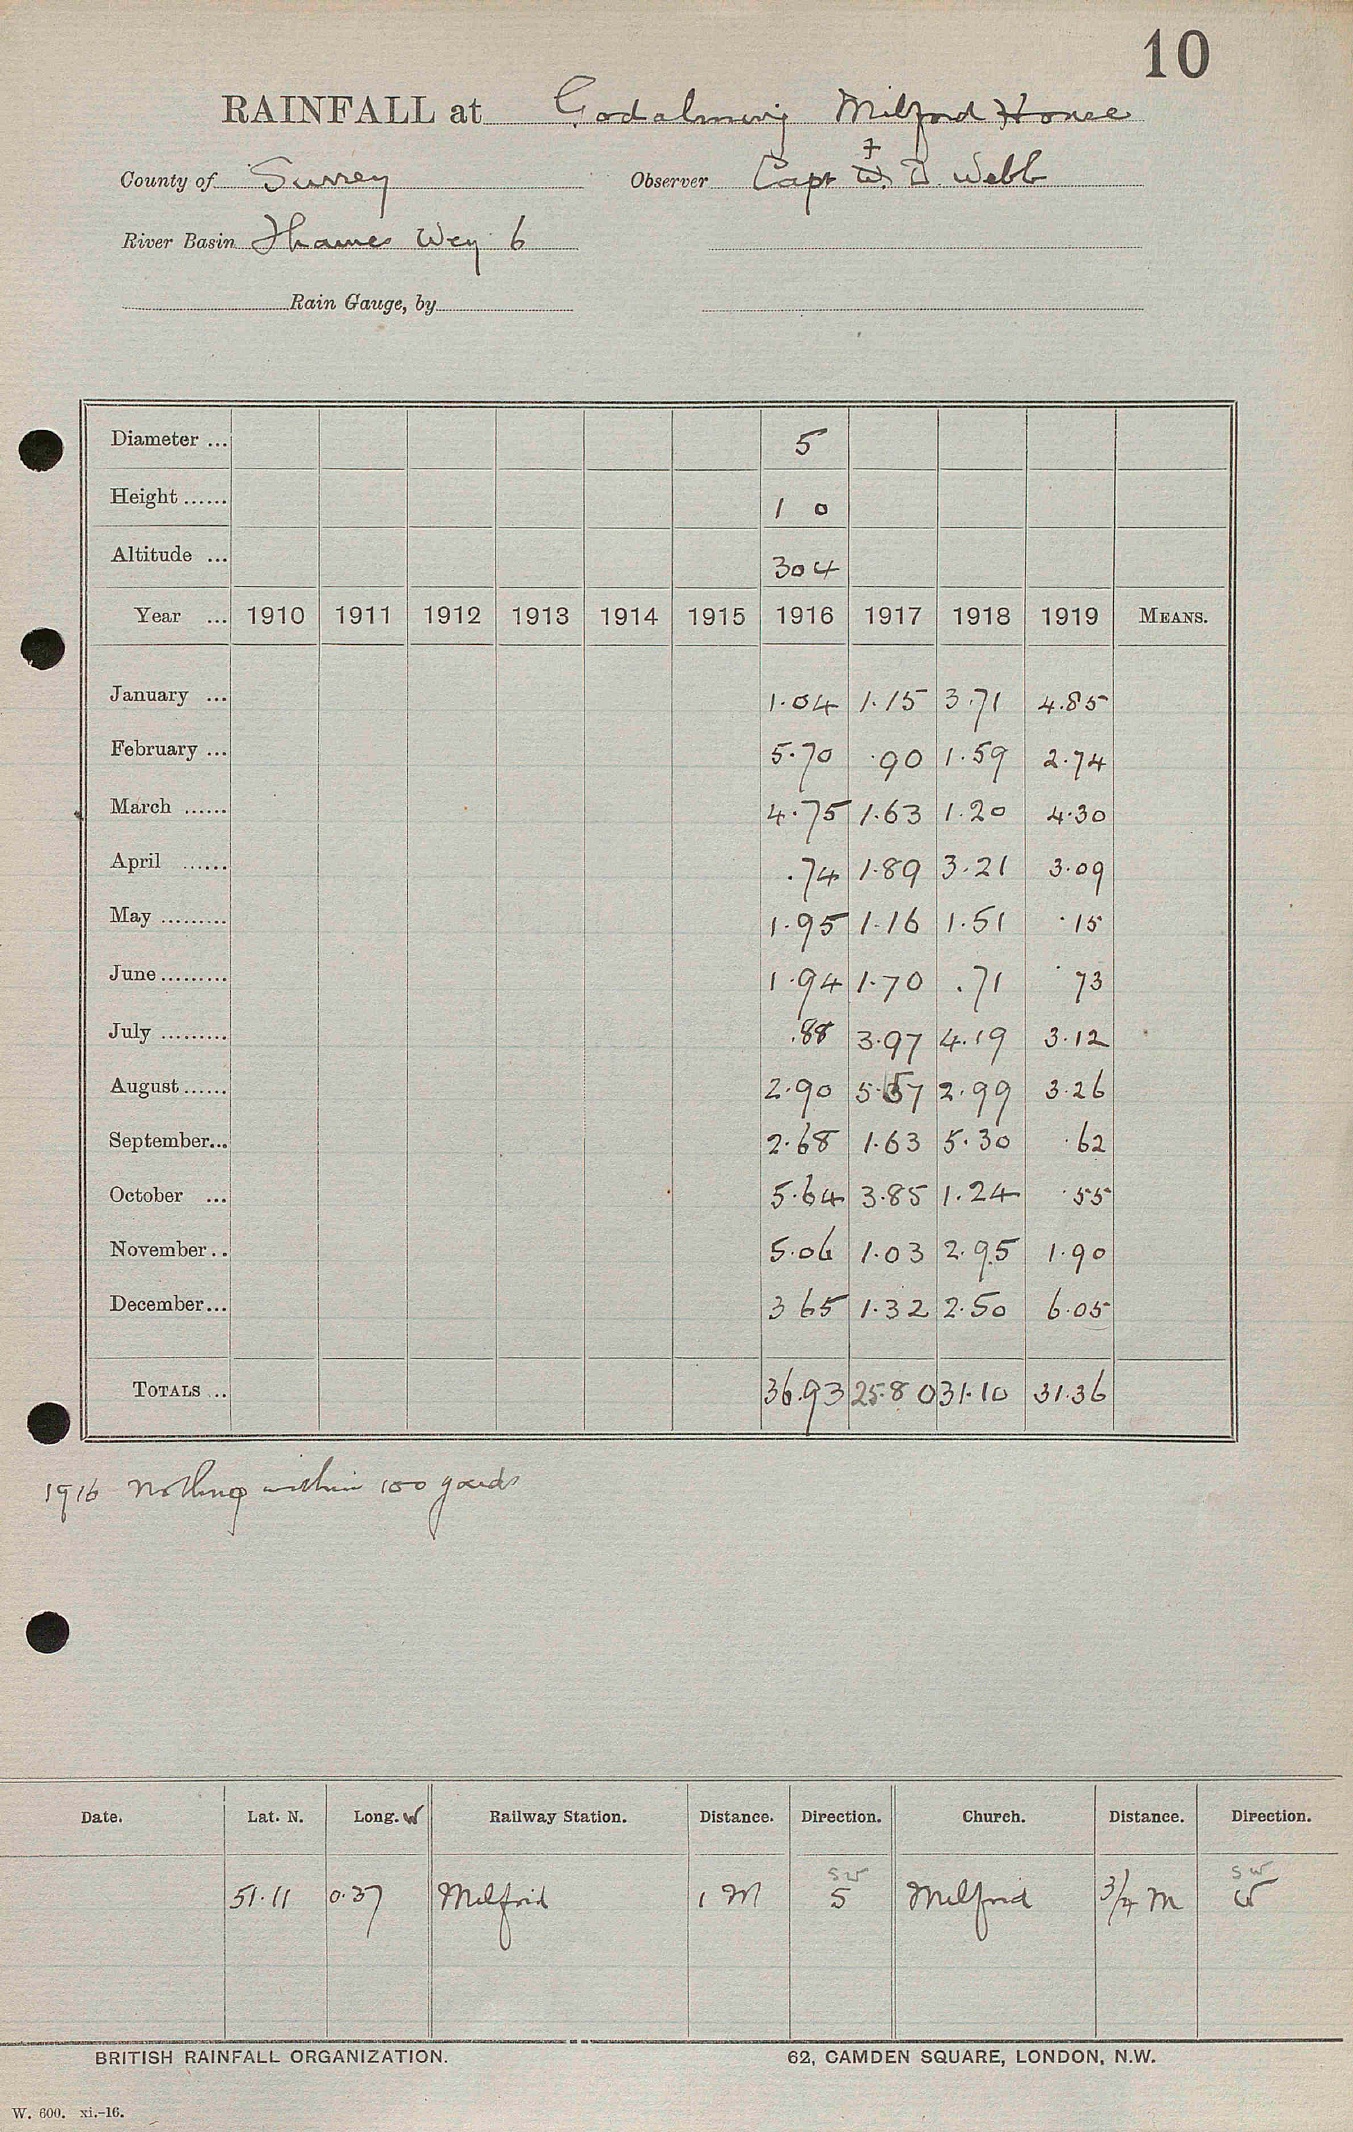 10
RAINFALL at Godalming Milford House
County of Surrey Observer Capt W. F D. Webb
River Basin Thames Wey 6
Rain Gauge, by
Diameter ... 5
Height ...... 1 0
Altitude ... 304
Year ... 1910 1911 1912 1913 1914 1915 1916 1917 1918 1919 MEANS.
January ... 1.04 1.15 3.71 4.85
February ... 5.70 .90 1.59 2.74
March ...... 4.75 1.63 1.20 4.30
April ...... .74 1.89 3.21 3.09
May ......... 1.95 1.16 1.51 .15
June ......... 1.94 1.70 .71 .73
July ......... .88 3.97 4.19 3.12
August ...... 2.90 5.57 2.99 3.26
September... 2.68 1.63 5.30 .62
October ... 5.64 3.85 1.24 .55
November.. 5.06 1.03 2.95 1.90
December... 3 65 1.32 2.50 6.05
TOTALS ... 36.93 25.80 31.10 31.36
1916 Nothing within 100 yards
Date. Lat. N. Long. W Railway Station. Distance. Direction. Church. Distance. Direction.
SW SW
51.11 0.37 Milford 1 M S Milford 3/4 M W
BRITISH RAINFALL ORGANIZATION. 62, CAMDEN SQUARE, LONDON, N.W.
W. 600. xi.-16.